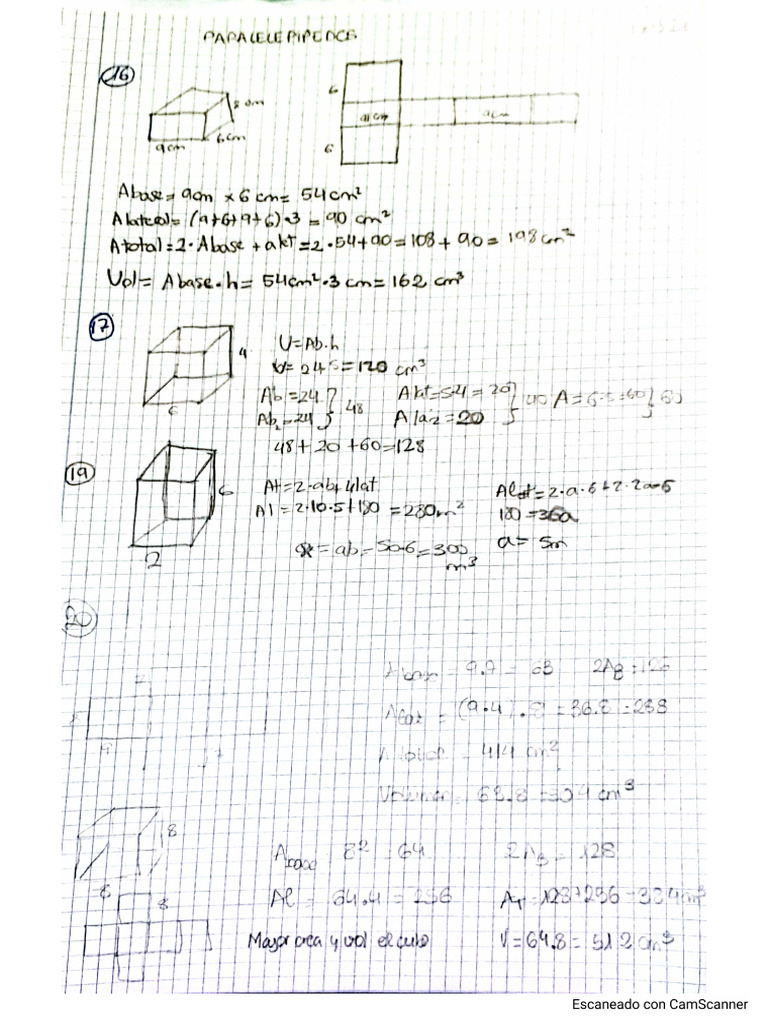 PARALELEPIPEDOS
16
3 cm
6cm
9cm
6
9cm
9cm
6
Abase= 9cm x 6 cm= 54 cm²
Alateral= (9+6+9+6)·3 = 90 cm²
Atotal=2·Abase + alat=2·54+90=108+90=198cm²
Vol= Abase·h= 54cm²·3 cm=162 cm³
17
4
6
V=Ab.h
V=24·5=120 cm³
Ab =24
Ab₂=24
48
Alat=5·4=20
Ala2=20
40
A=6·5=60
60
48+20+60=128
19
6
2
At=2·ab+4lat
Al=2·10·5+180=280m²
Alat=2·a·6+2·2a·6
180=36a
a= 5m
=ab=50·6=300
m³
20
9
7
Abase=9.7=63
2AB=126
Alat=(9.4).8=36.8=288
Atotal=414 cm²
Volumen=63.8=504 cm³
8
8
8
Abase=8²=64
2AB=128
Al=64.4=256
AT=128+256=384cm²
Mayor area y vol el cubo
V=64.8=512cm³
Escaneado con CamScanner